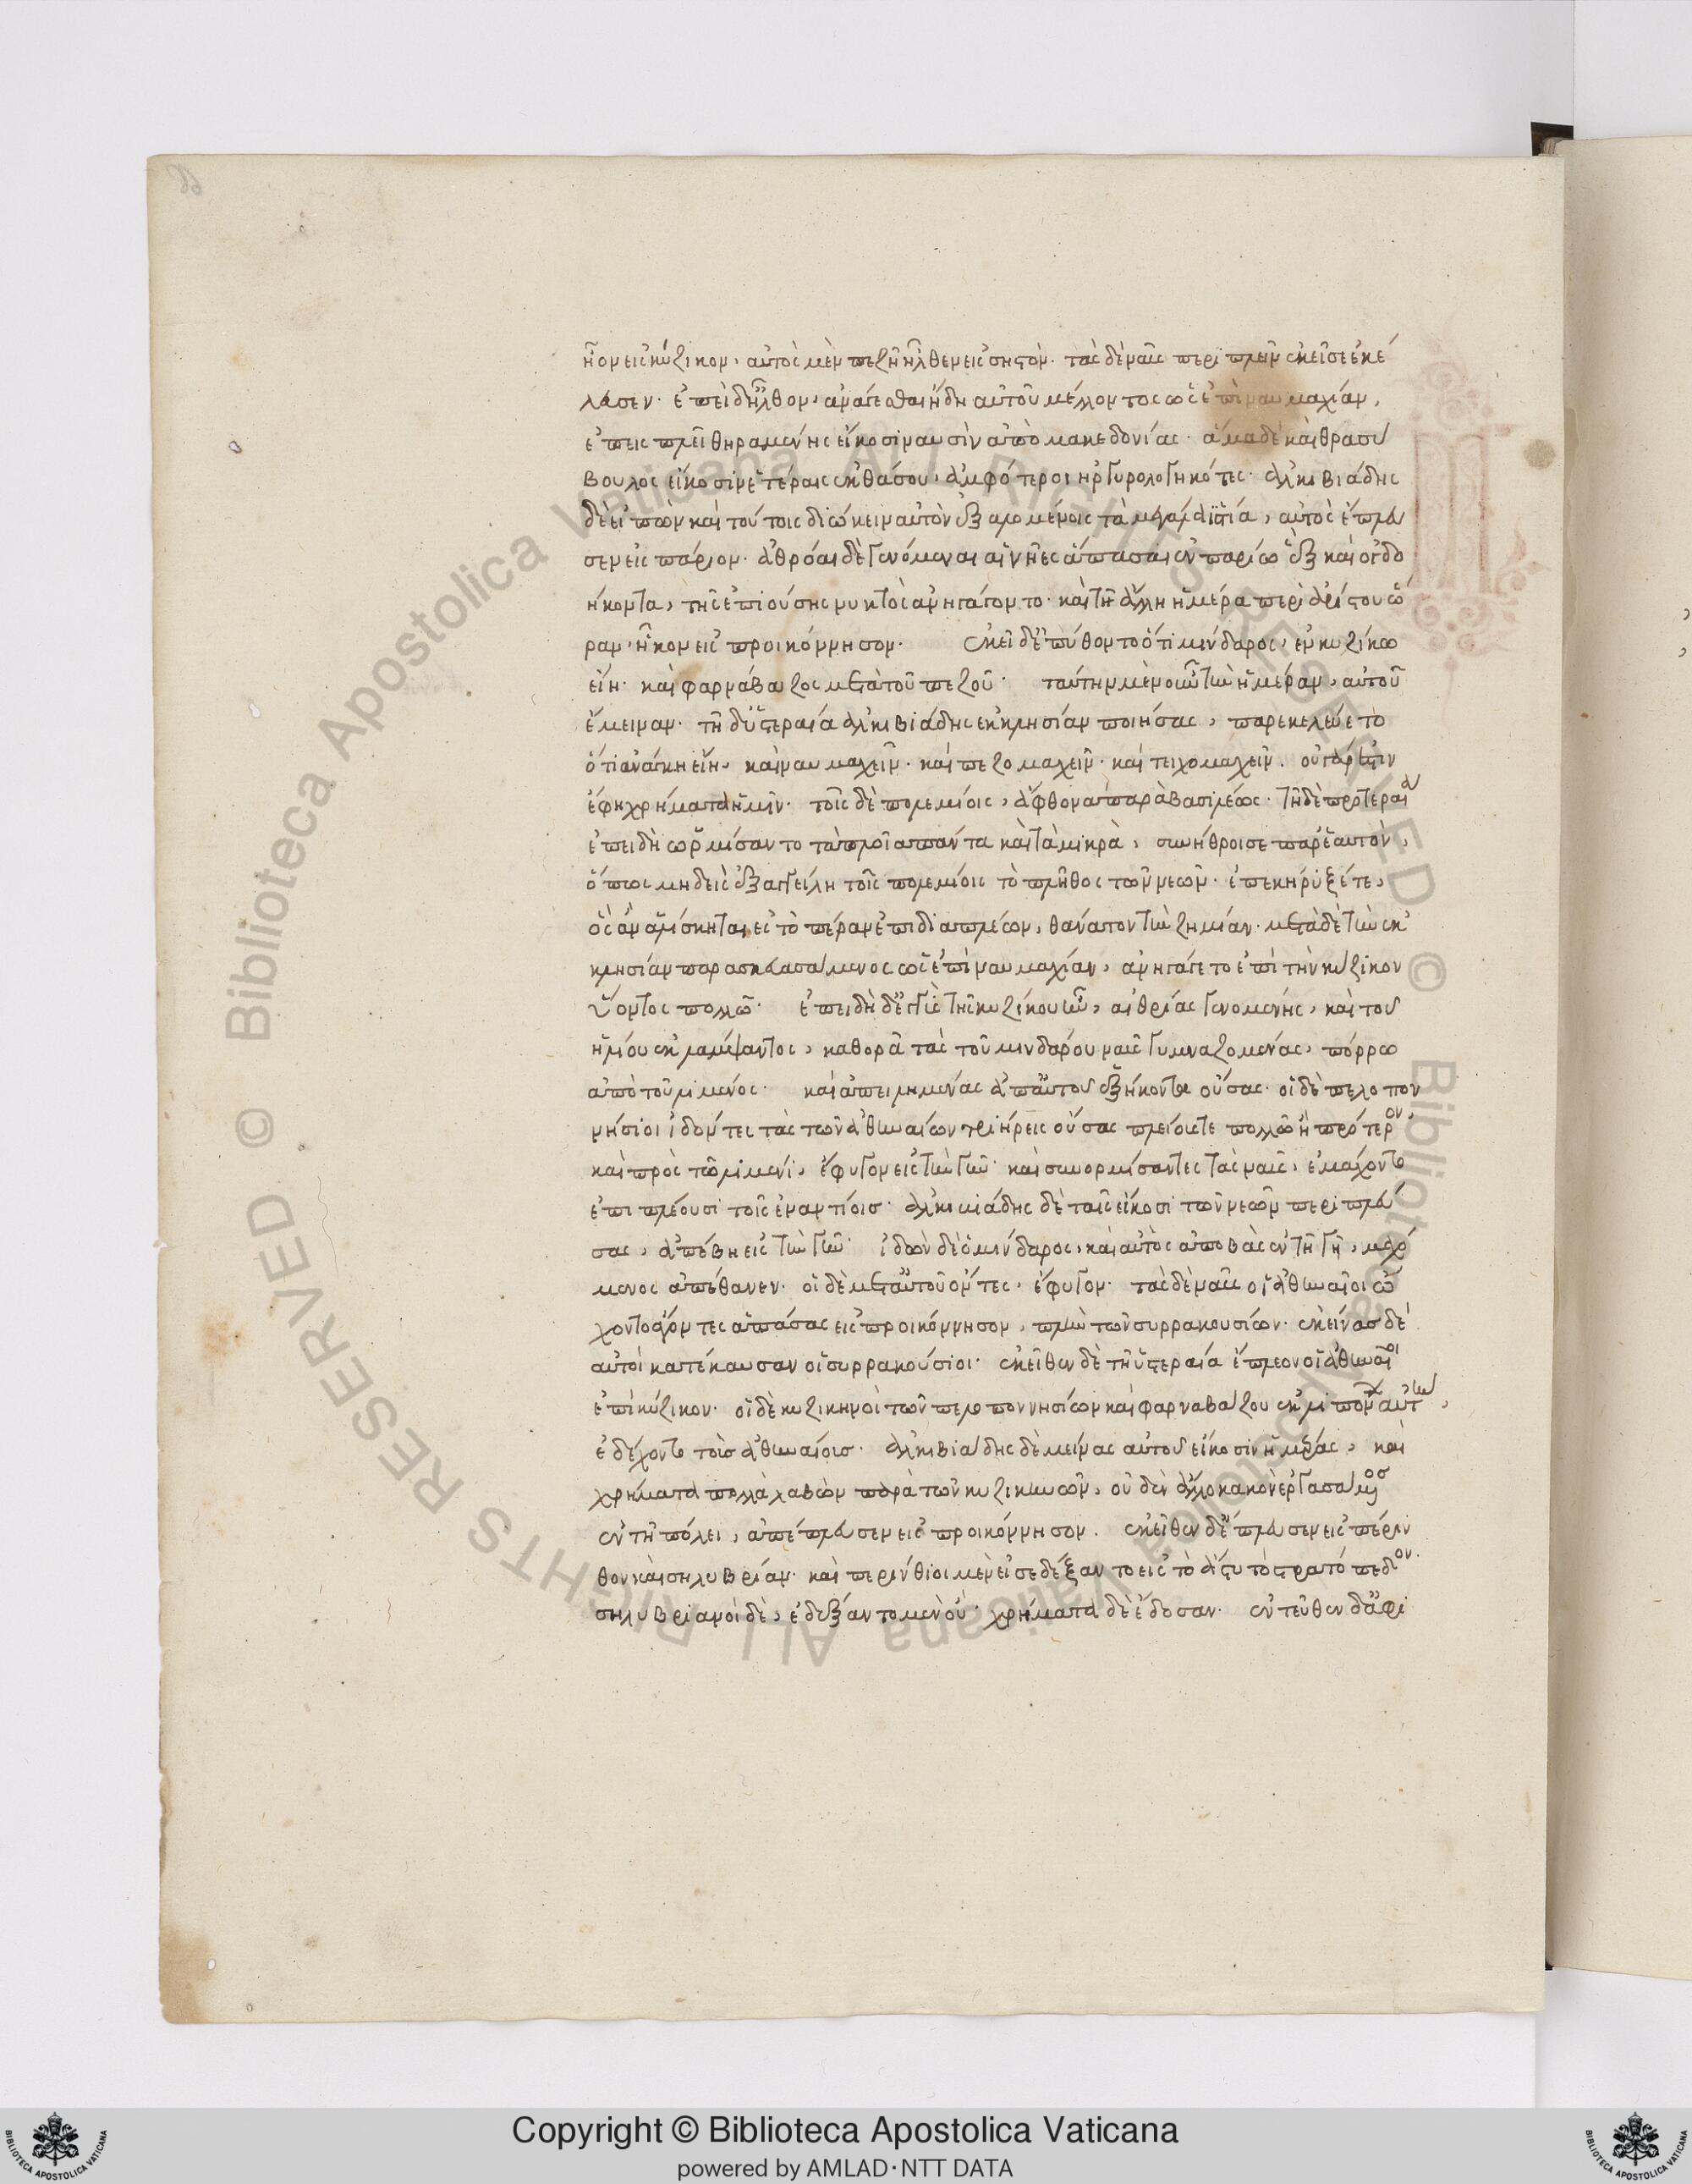 ἧον εἰς κύζικον, αὐτὸς μὲν πεζῆ ἦλθεν εἰς σηστόν· τὰς δὲ ναῦς περιπλεῖν ἐκεῖσε ἐκέ
λευσεν· ἐπεὶ δ' ἦλθον, ἀνάγεσθαι ἤδη αὐτοῦ μέλλοντος ὡς ἐπὶ ναυμαχίαν,
ἐπεισπλεῖ θηραμένης εἴκοσι ναυσὶν ἀπὸ μακεδονίας· ἅμα δὲ καὶ θρασύ
βουλος εἴκοσιν ἑτέραις ἐκ θάσου, ἀμφότεροι ἠργυρολογηκότες· ἀλκιβιάδης
δὲ εἰπὼν καὶ τούτοις διώκειν αὐτὸν ἐξελομένοις τὰ μεγάλα ἱστία, αὐτὸς ἔπλευ
σεν εἰς πάριον· ἀθρόαι δὲ γενόμεναι αἱ νῆες ἅπασαι ἐν παρίω ἓξ καὶ ὀγδο
ήκοντα, τῆς ἐπιούσης νυκτὸς ἀνηγάγοντο· καὶ τῆ ἄλλη ἡμέρα περὶ ἀρίστου ὥ
ραν, ἧκον εἰς προικόννησον· ἐκεῖ δ' ἐπύθοντο ὅτι μίνδαρος, ἐν κυζίκω
εἴη· καὶ φαρνάβαζος μετὰ τοῦ πεζοῦ· ταύτην μὲν οὖν τὴν ἡμέραν, αὐτοῦ
ἔμειναν· τῆ δ' ὑστεραία ἀλκιβιάδης ἐκκλησίαν ποιήσας, παρεκελεύετο
ὅτι ἀνάγκη εἴη, καὶ ναυμαχεῖν· καὶ πεζομαχεῖν· καὶ τειχομαχεῖν. οὐ γάρ ἐστιν
ἔφη χρήματα ἡμῖν· τοῖς δὲ πολεμίοις, ἄφθονα παρὰ βασιλέως· τῆ δὲ προτεραία
ἐπειδὴ ὡρμίσαντο τὰ πλοῖα πάντα καὶ τὰ μικρὰ, συνήθροισε παρ' ἑαυτὸν,
ὅπως μηδεὶς ἐξαγγείλη τοῖς πολεμίοις τὸ πλῆθος τῶν νεῶν· ἐπεκήρυξέ τε,
ὃς ἂν ἁλίσκηται ἐς τὸ πέραν ἐπιδιαπλέων, θάνατον τὴν ζημίαν· μετὰ δὲ τὴν ἐκ
κλησίαν παρασκευασάμενος ὡς ἐπὶ ναυμαχίαν, ἀνηγάγετο ἐπὶ τὴν κύζικον
ὕοντος πολλῶ· ἐπειδὴ δ' ἐγγὺς τῆς κυζίκου ἦν, αἰθρίας γενομένης, καὶ τοῦ
ἡλίου ἐκλάμψαντος, καθορᾶ τὰς τοῦ μινδάρου ναῦς γυμναζομένας, πόρρω
ἀπὸ τοῦ λιμένος· καὶ ἀπειλημμένας ἀπ' αὐτοῦ ἑξήκοντα οὔσας· οἱ δὲ πελοπον
νήσιοι ἰδόντες τὰς τῶν ἀθηναίων τριήρεις οὔσας πλείους τε πολλῶ ἢ πρότερον,
καὶ πρὸς τῶ λιμένι, ἔφυγον εἰς τὴν γῆν· καὶ συνορμίσαντες τὰς ναῦς, ἐμάχοντο
ἐπιπλέουσι τοῖς ἐναντίοις· ἀλκιβιάδης δὲ ταῖς εἴκοσι τῶν νεῶν περιπλεύ
σας, ἀπέβη εἰς τὴν γῆν· ἰδὼν δὲ ὁ μίνδαρος, καὶ αὐτὸς ἀποβὰς ἐν τῆ γῆ, μαχό
μενος ἀπέθανεν· οἱ δὲ μετ' αὐτοῦ ὄντες, ἔφυγον· τὰς δὲ ναῦς οἱ ἀθηναῖοι ὤ
χοντο ἄγοντες ἁπάσας εἰς προικόννησον, πλὴν τῶν συρρακουσίων· ἐκείνας δὲ
αὐτοὶ κατέκαυσαν οἱ συρρακούσιοι· ἐκεῖθεν δὲ τῆ ὑστεραία ἔπλεον οἱ ἀθηναῖοι
ἐπὶ κύζικον· οἱ δὲ κυζικηνοὶ τῶν πελοποννησίων καὶ φαρναβάζου ἐκλιπόντων αὐτὴν,
ἐδέχοντο τοὺς ἀθηναίους· ἀλκιβιάδης δὲ μείνας αὐτοῦ εἴκοσιν ἡμέρας, καὶ
χρήματα πολλὰ λαβὼν παρὰ τῶν κυζικηνῶν, οὐδὲν ἄλλο κακὸν ἐργασάμενος
ἐν τῆ πόλει, ἀπέπλευσεν εἰς προικόννησον. ἐκεῖθεν δ' ἔπλευσεν εἰς πέριν
θον καὶ σηλυβρίαν· καὶ περίνθιοι μὲν εἰσεδέξαντο εἰς τὸ ἄστυ τὸ στρατόπεδον·
σηλυβριανοὶ δὲ, ἐδέξαντο μὲν οὔ· χρήματα δὲ ἔδοσαν· ἐντεῦθεν δ' ἀφι
Copyright © Biblioteca Apostolica Vaticana
powered by AMLAD·NTT DATA